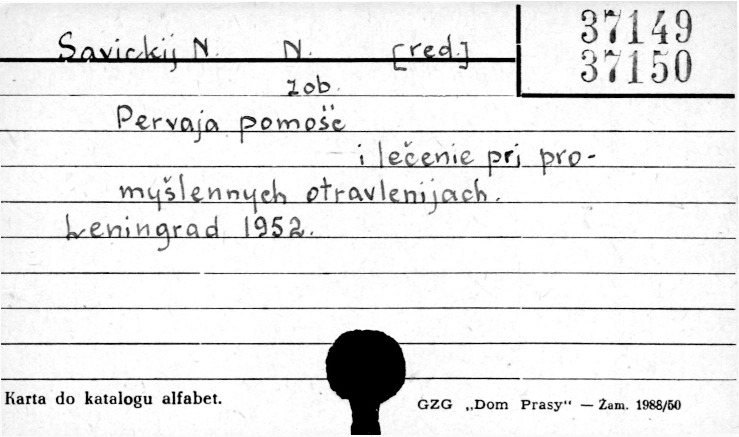 37149
37150
Savickij N. N. [red.]
zob.
Pervaja pomošč
i lečenie pri pro-
myšlennych otravlenijach.
Leningrad 1952.
Karta do katalogu alfabet.
GZG „Dom Prasy“ — Żam. 1988/50